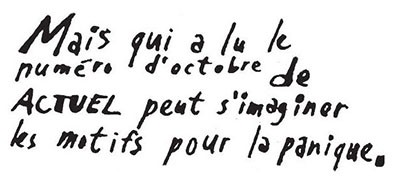 Mais qui a lu le
numéro d'octobre de
ACTUEL peut s'imaginer
les motifs pour la panique.